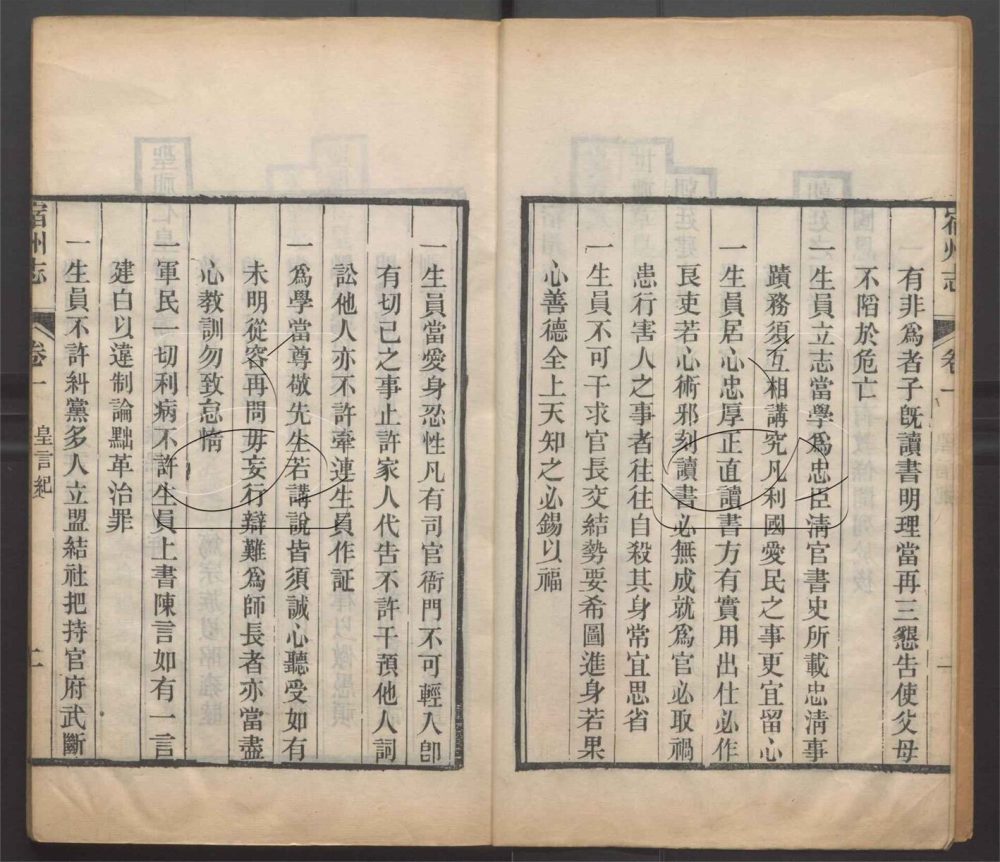 宿州志
卷一
有非爲者子旣讀書明理當再三懇告使父母
不陷於危亡
一生員立志當學爲忠臣淸官書史所載忠淸事
蹟務須互相講究凡利國愛民之事更宜留心
一生員居心忠厚正直讀書方有實用出仕必作
良吏若心術邪刻讀書必無成就爲官必取禍
患行害人之事者往往自殺其身常宜思省
一生員不可干求官長交結勢要希圖進身若果
心善德全上天知之必錫以福
一生員當愛身忍性凡有司官衙門不可輕入卽
有切己之事止許家人代告不許干預他人詞
訟他人亦不許牽連生員作証
一爲學當尊敬先生若講說皆須誠心聽受如有
未明從容再問毋妄行辯難爲師長者亦當盡
心教訓勿致怠惰
一軍民一切利病不許生員上書陳言如有一言
建白以違制論黜革治罪
一生員不許糾黨多人立盟結社把持官府武斷
宿州志
卷一
皇言紀
二